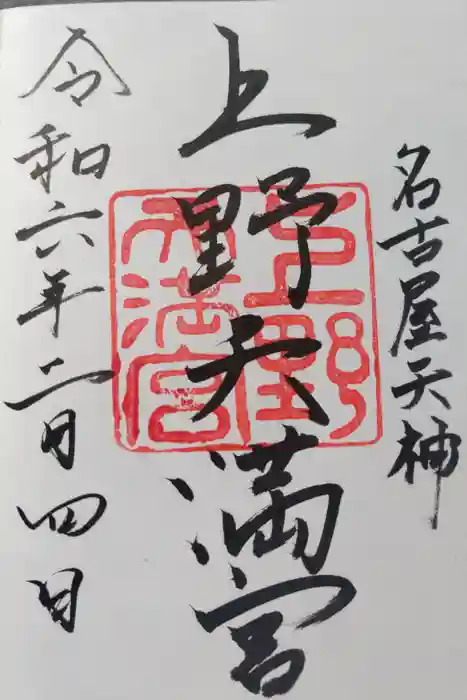 名古屋天神
上野天満宮
上野
天満宮
令和六年二月四日